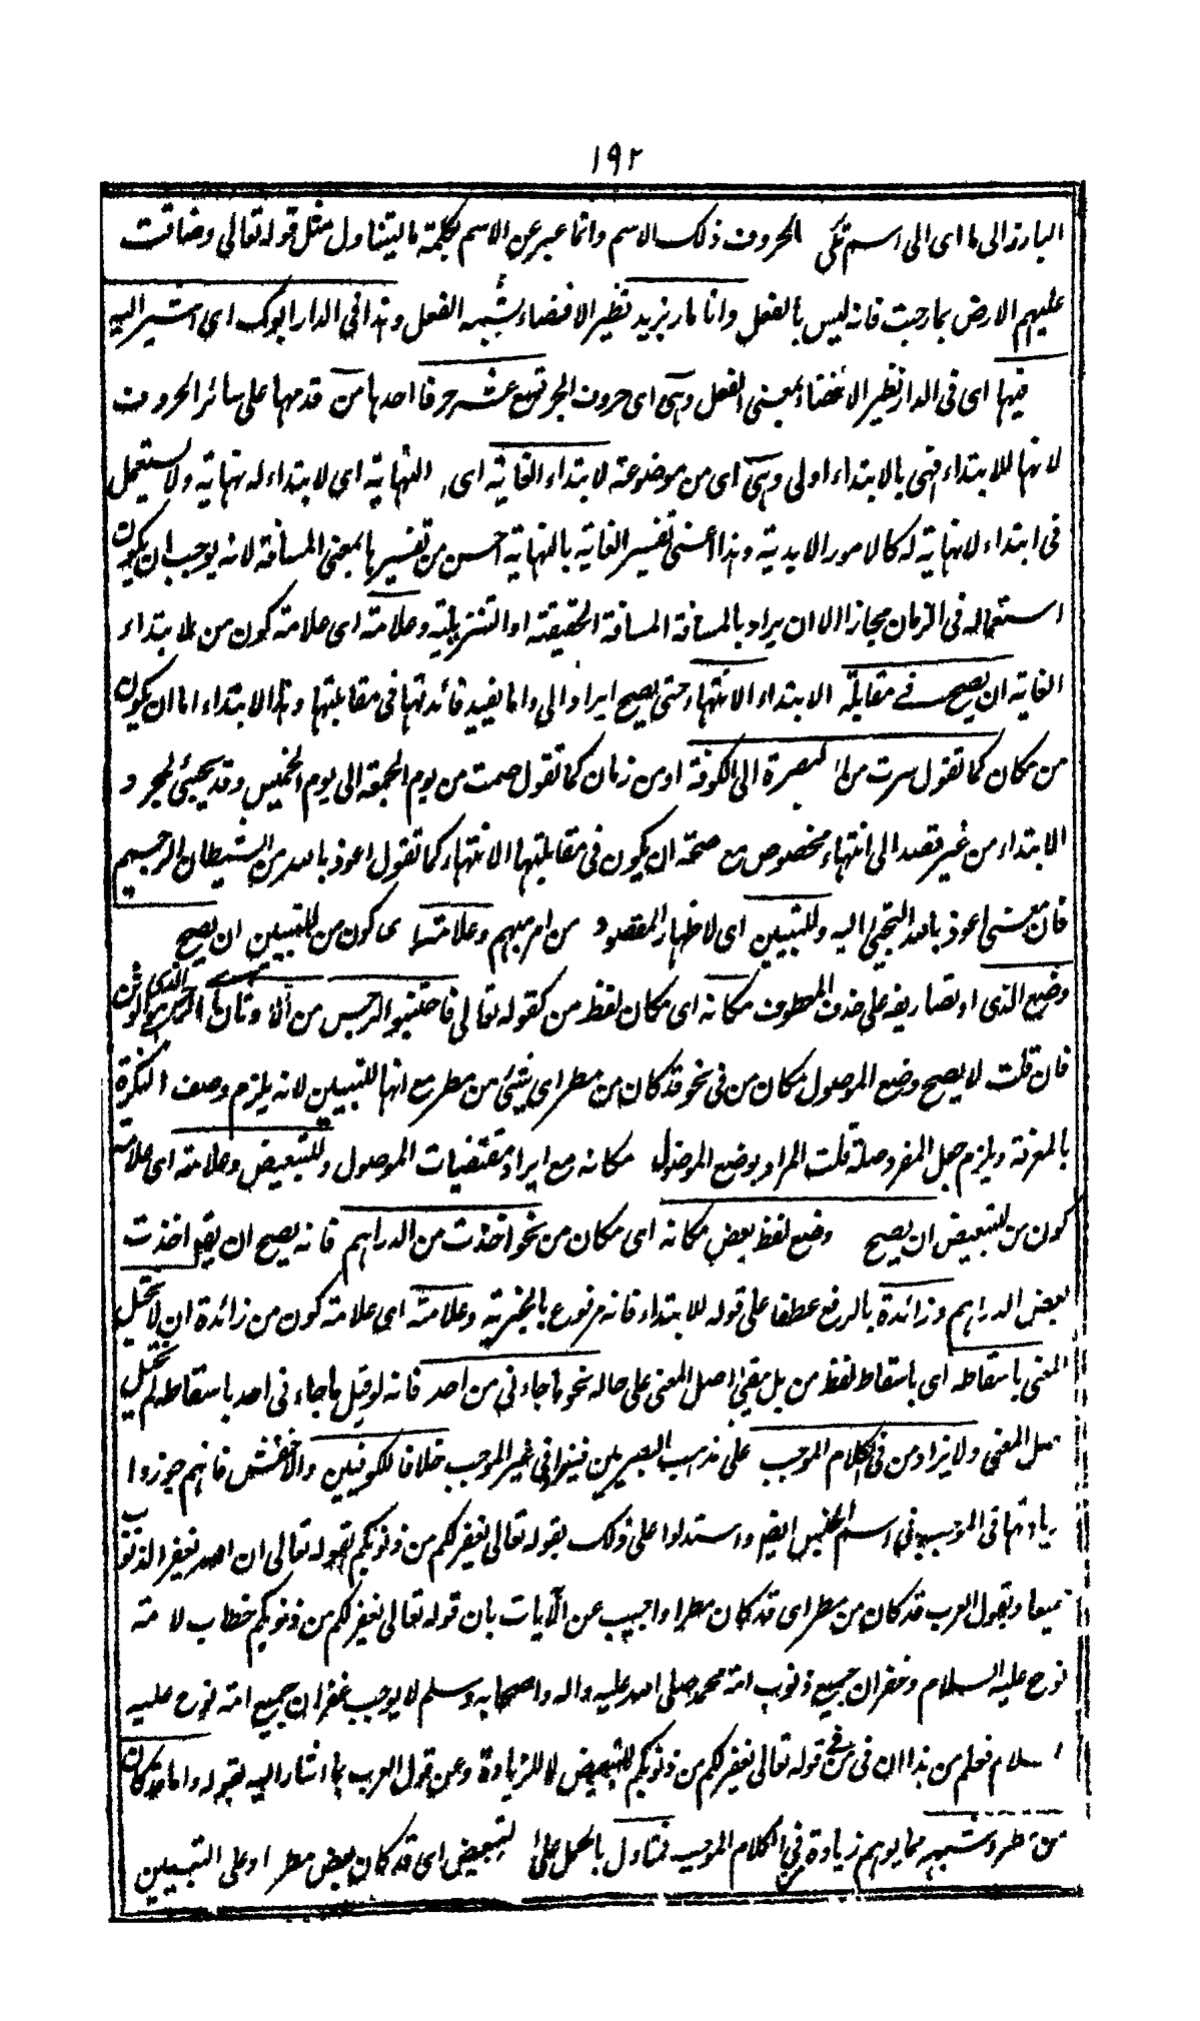 ١٩٢
البارز الى ما اى الى اسم تلى الحروف ذلك الاسم وانما عبر عن الاسم بكلمة ما ليتناول مثل قوله تعالى وضاقت
عليهم الارض بما رحبت فانه ليس بالفعل وانا مار بزيد نظير الافضاء بشبه الفعل وهذا فى الدار ابوك اى اشير اليه
فيها اى فى الدار نظير الافضاء بمعنى الفعل وهى اى حروف الجر تسع عشر حرفا احدها من قدمها على سائر الحروف
لانها للابتداء فهى بالابتداء اولى وهى اى من موضوعة لابتداء الغاية اى النهاية اى لابتداء له نهاية ولا يستعمل
فى ابتداء لا نهاية له كالامور الابدية وهذا اعنى تفسير الغاية بالنهاية احسن من تفسيرها بمعنى المسافة لانه يوجب ان يكون
استعماله فى الزمان مجازا الا ان يراد بالمسافة المسافة الحقيقة او التنزيلية وعلامته اى علامة كون من لابتداء
الغاية ان يصح فى مقابلة الابتداء الانتهاء حتى يصح ايراد الى او ما يفيد فائدتها فى مقابلتها وهذا الابتداء اما ان يكون
من مكان كما تقول سرت من البصرة الى الكوفة او من زمان كما تقول صمت من يوم الجمعة الى يوم الخميس وقد يجيئ لمجرد
الابتداء من غير قصد الى انتهاء مخصوص مع صحة ان يكون فى مقابلتها الانتهاء كما تقول اعوذ بالله من الشيطان الرجيم
فان معنى اعوذ بالله التجئ اليه وللتبيين اى لاظهار المقصود من امر مبهم وعلامته اى كون من للتبيين ان يصح
وضع الذى او تصاريفه على حذف المعطوف مكانه اى مكان لفظ من كقوله تعالى فاجتنبوا الرجس من الاوثان اى الرجس الذى هو الوثن
فان قلت لا يصح وضع الموصول مكان من فى نحو قد كان من مطر اى شئ من مطر مع انها للتبيين لانه يلزم وصف النكرة
بالمعرفة ويلزم جعل المفرد صلة قلت المراد بوضع الموصول مكانه مع ايراد مقتضيات الموصول وللتبعيض وعلامته اى علامة
كون من للتبعيض ان يصح وضع لفظ بعض مكانه اى مكان من نحو اخذت من الدراهم فانه يصح ان يقال اخذت
بعض الدراهم وزائدة بالرفع عطفا على قوله للابتداء فانه مرفوع بالخبرية وعلامته اى علامة كون من زائدة ان لا يختل
المعنى باسقاطه اى باسقاط لفظ من بل يبقى اصل المعنى على حاله نحو ما جاءنى من احد فانه لو قيل ما جاءنى احد باسقاطه لم يختل
اصل المعنى ولا يزاد من فى الكلام الموجب على مذهب البصريين فيزاد فى غير الموجب خلافا للكوفيين والاخفش فانهم جوزوا
زيادتها فى الموجب فى اسم الجنس ايضا واستدلوا على ذلك بقوله تعالى يغفر لكم من ذنوبكم بقوله تعالى ان الله يغفر الذنوب
جميعا وبقول العرب قد كان من مطر اى قد كان مطر واجيب عن الآيات بان قوله تعالى يغفر لكم من ذنوبكم خطاب لامة
نوح عليه السلام وغفران جميع ذنوب امة محمد صلى الله عليه واله واصحابه وسلم لا يوجب غفران جميع امة نوح عليه
السلام فعلم من هذا ان من فى قوله تعالى يغفر لكم من ذنوبكم للتبعيض لا للزيادة وعن قول العرب بما اشار اليه بقوله واما قد كان
من مطر وشبهه مما يوهم زيادة من فى الكلام الموجب فمتاول بالحمل على التبعيض اى قد كان بعض مطر او على التبيين